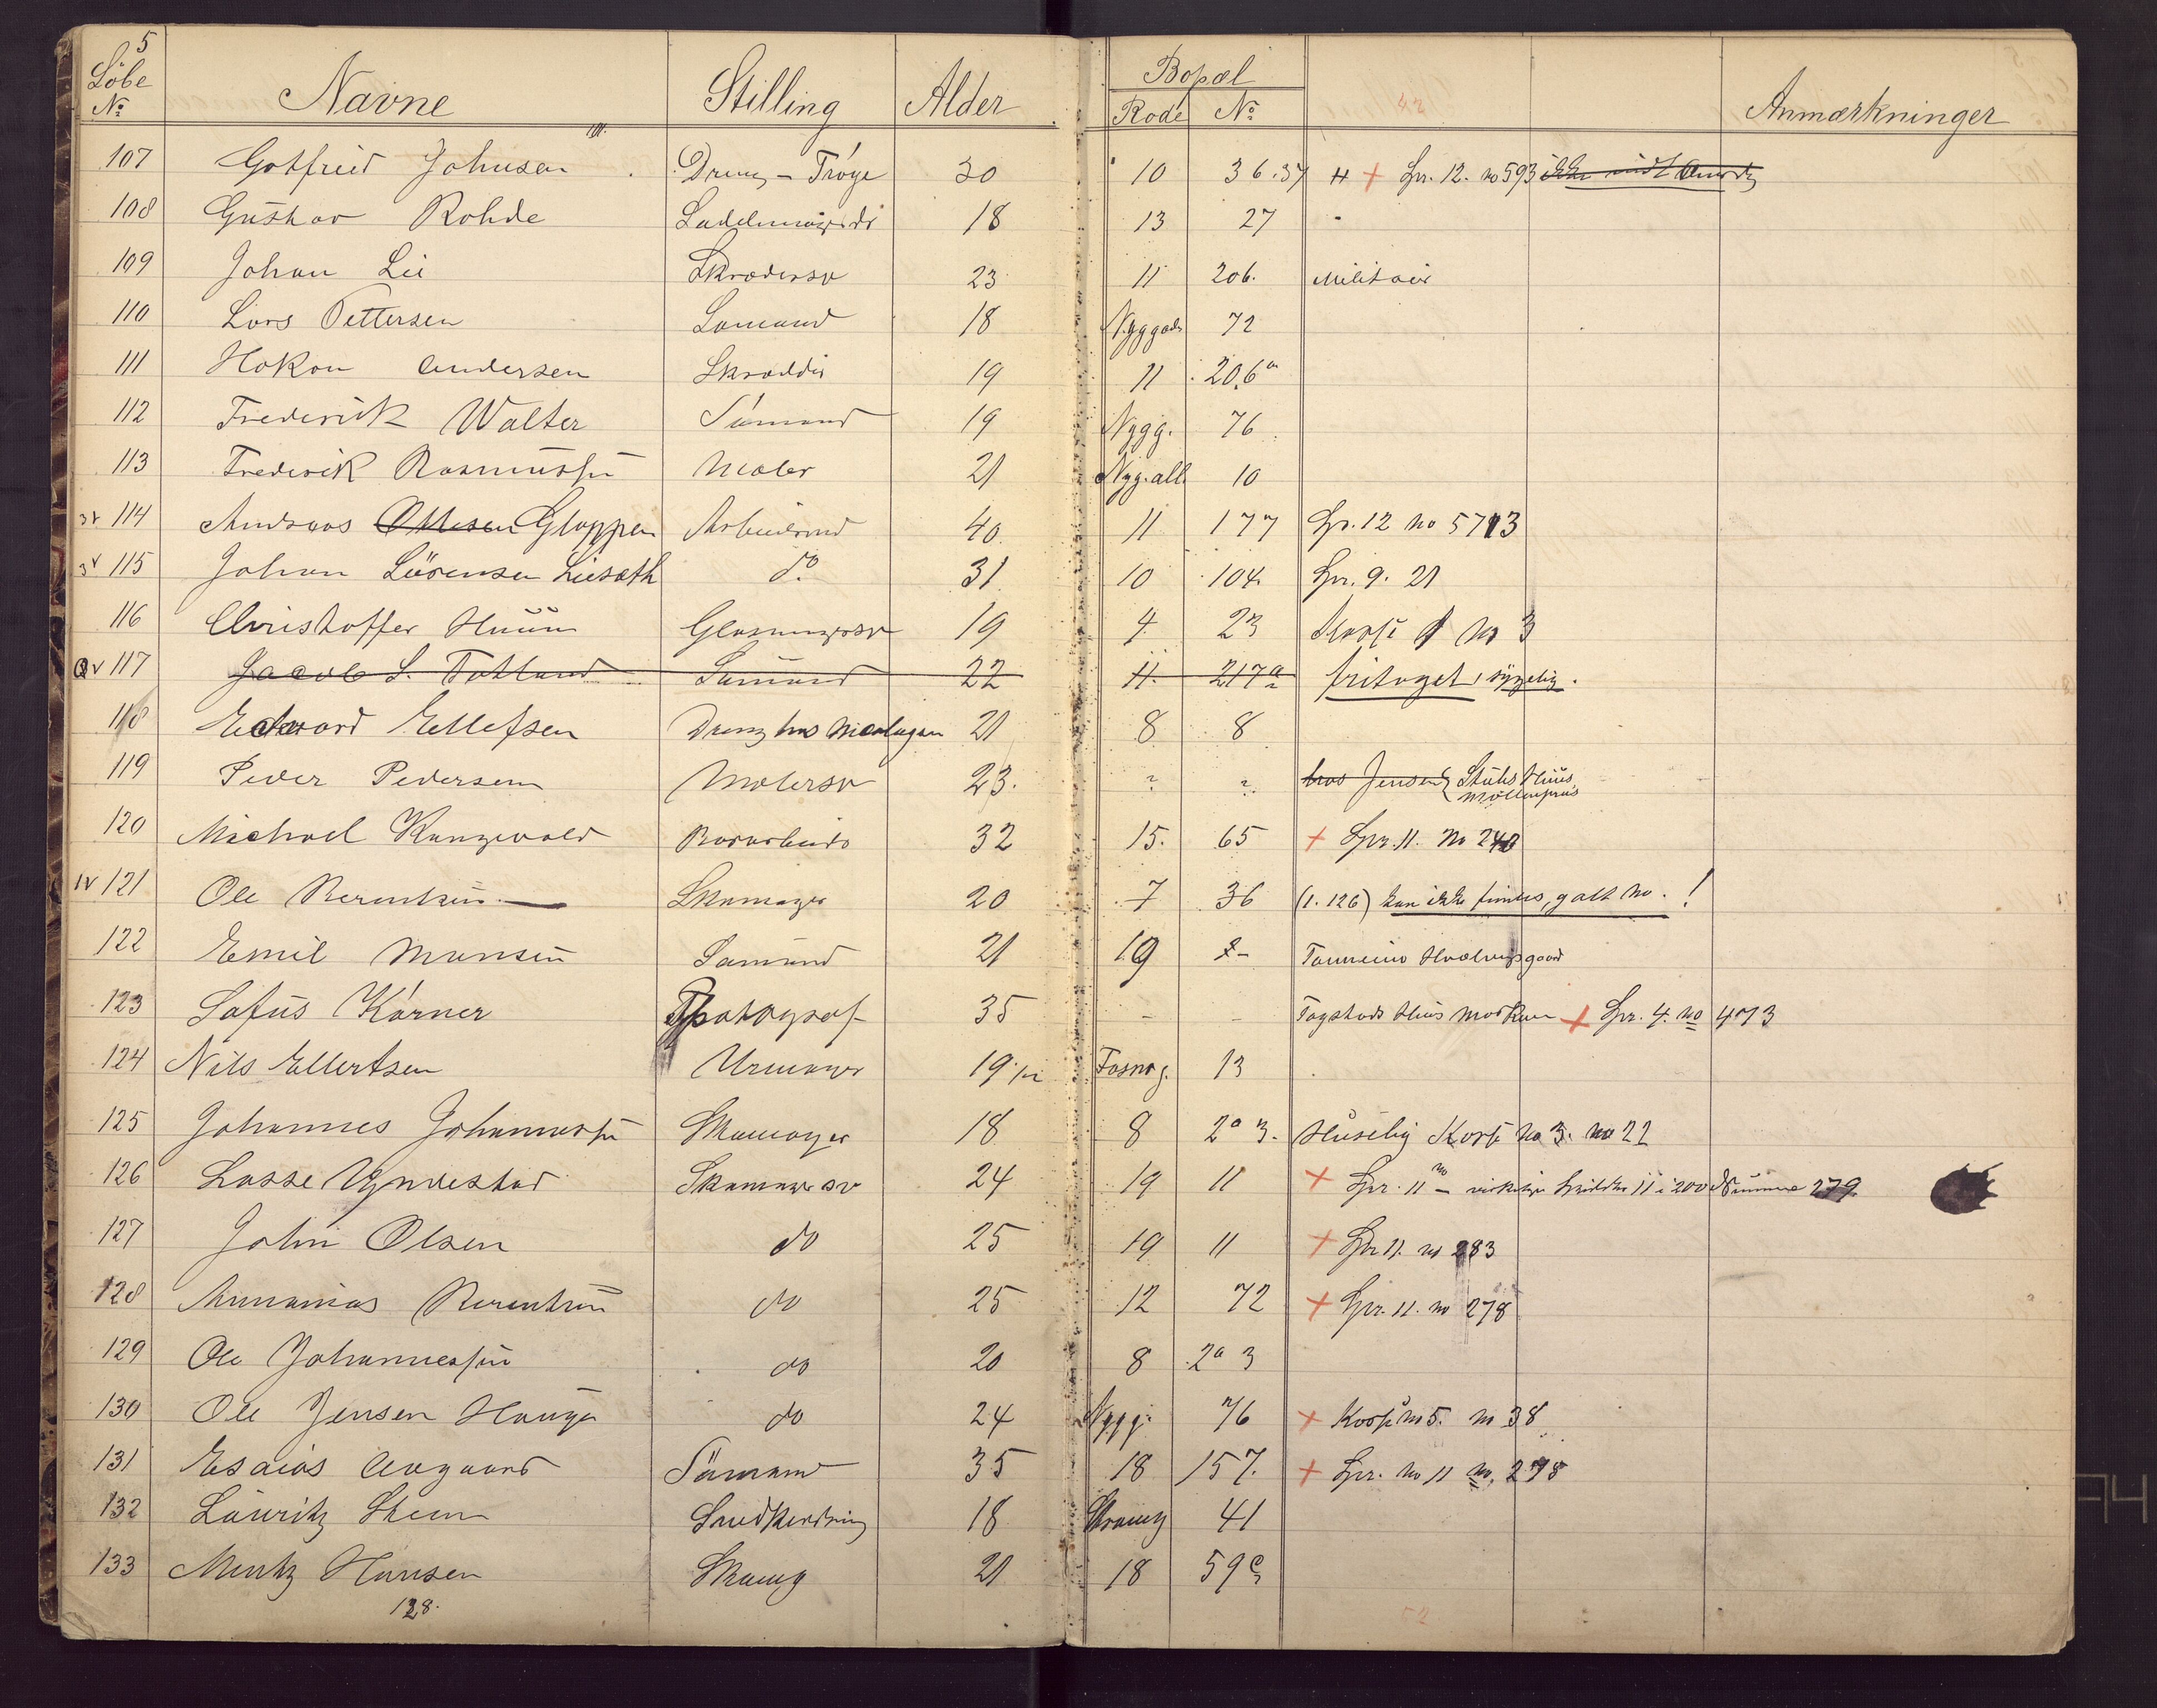 5
Löbe No Navne Stilling Alder Bopæl Rode No 42 Anmærkninger
101.
107 Gotfried Johnsen Dreng - Tröye 30 10 36.37 H + Spr. 12. no 593
108 Gustav Rohde 18 13 27
109 Johan Lie Skrædersv 23 11 206. Militair
110 Lars Pettersen Sømand 18 Nyggade 72
111 Hokon Andersen Skrædder 19 11 206a
112 Frederick Walter Sömand 19 Nygg. 76
113 Frederik Rasmussen Maler 21 Nyg. all. 10
3v 114 Andreas Ottesen Gloppen Arbeidsmd 40. 11 177 Spr. 12 no 5713
3v 115 Johan Lörensen Liesæth do. 31 10 104. Spr. 9. 21
116 Christoffer Huun Glasmagersv 19 4. 23 Korps no 3
v 117 Jacob S. Totland Sømand 22 11. 217a fritaget, sygelig.
118 Edvard Ellefsen Dreng hos 21 8 8
119 Peder Pedersen Malersv 23. ? ?. hos Jensen Stuhs Huus
Möllenpriis
120 Michael Kungwald Bodarbeider 32 15. 65 + Spr. 11. No 240
1v 121 Ole Berentsen Skomager 20 7 36 (1. 126) kan ikke findes, galt no. !
122 Emil Monsen Sømand 21 19 2-
123 Sofus Körner Photograf 35 - - Tagstads Huus Marken + Spr. 4. no 473
124 Nils Ellertsen Urmager 19 1/2 Fosng. 13
125 Johannes Johannessen Skomager 18 8 2a 3. Huselig Korps no 3. no 22
126 Lasse Yndestad Skomagersv 24 19 11 + Spr. 11 no 279
127 John Olsen do 25 19 11 + Spr 11. no 283
128 Annanias Berentsen do 25 12 72 + Spr. 11. no 278
129 Ole Johannessen do 20 8 2a 3
130 Ole Jensen Hauge do 24 Nygg. 76 + Korps no 5. no 38
131 Esaias Aagaard Sömand 35 18 157. + Spr. No 11 no. 298
132 Lauritz Steen 18 Strangg 41
133 Mentz Hansen Skomg 21 18 59c
128.
52